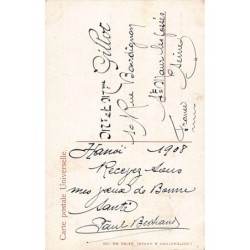 Mr et Mme Gillot
10 Rue Bourdignon
St Maur les fossés
(Seine)
France
Carte postale Universelle.
Hanoï 1908
Recevez sous
mes vœux de Bonne
Santé
Paul Bertrand